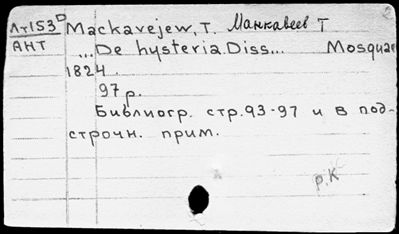 Лт153D Mackavejew, T. Манкавеев Т
АНТ ...De hysteria. Diss... Mosquae
1824.
97 р.
Библиогр. стр. 93-97 и в под-
строчн. прим.
р.К